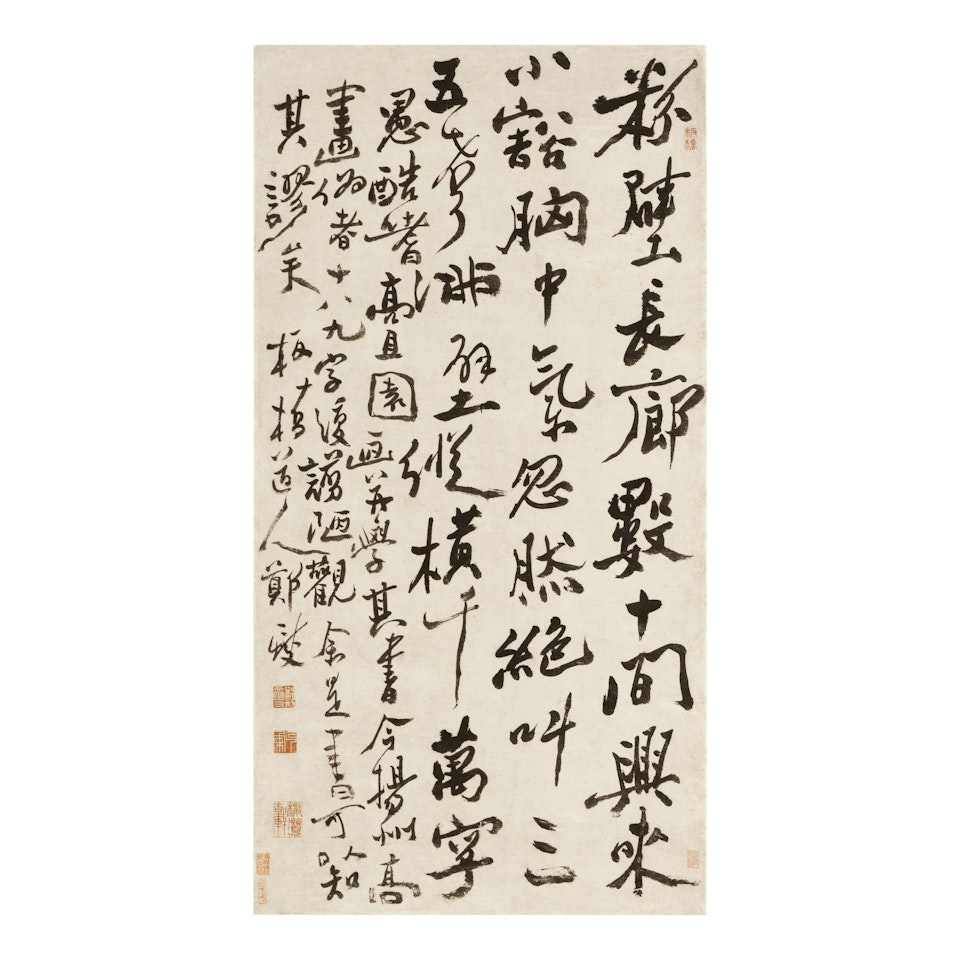 粉壁長廊數十間興來
小豁胸中氣忽然絕叫三
五聲滿壁縱橫千萬字
愚酷嗜高且園畫并學其書今揚州高
畫偽者十八九字復譾陋觀余是書可知
其謬矣 板橋道人鄭燮
板橋